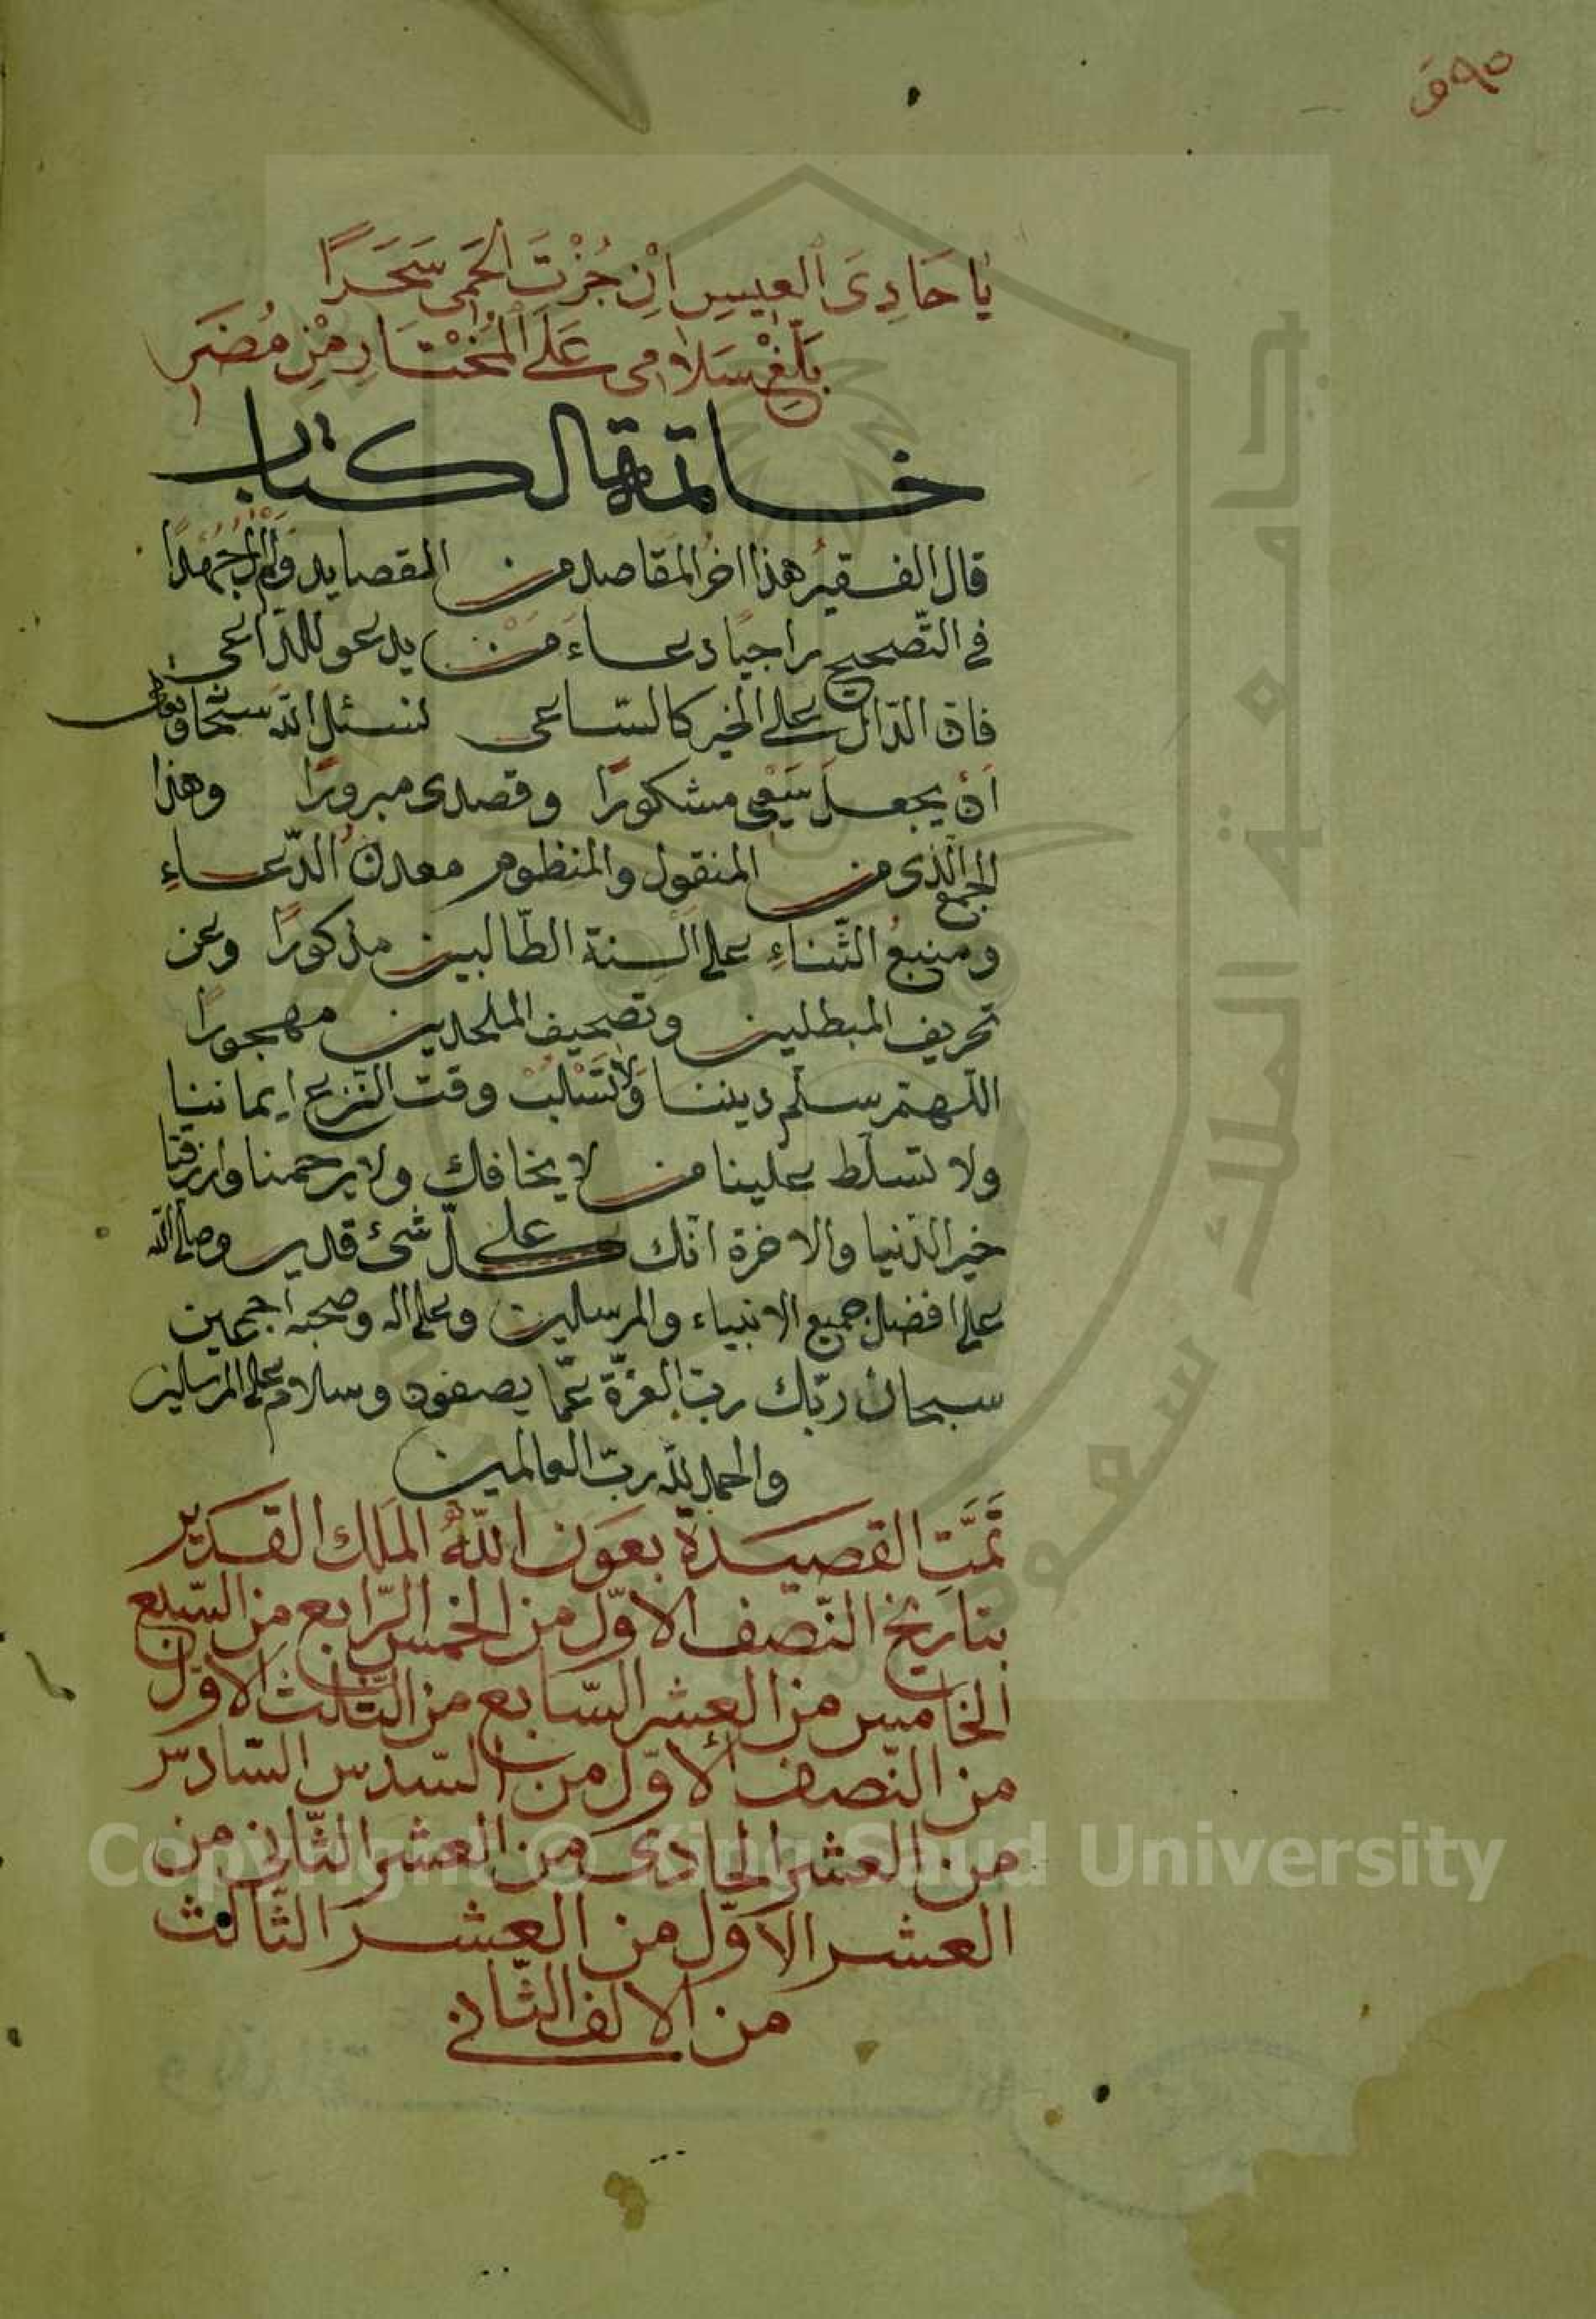 ٩٥ و
يَا حَادِىَ الْعِيسِ اِنْ جُزْتَ الْحَمِى سَحَرًا
بَلِّغْ سَلَامِى عَلَى الْمُخْتَارِ مِنْ مُضَرِ
خاتمة الكتاب
قال الفقير هذا اخر المقاصد من القصايد ولم ال جهدًا
في التّصحيح راجيًا دعاء مَنْ يدعو للدّاعى
فانّ الدّالّ على الخير كالسّاعى لنسئل الله سبحانه وتعالى
اَنْ يجعلَ سَعْيى مشكورًا وقصدى مبرورًا وهذا
الجمع الّذى من المنقول والمنظوم معدن الدّعاءِ
ومنبعُ الثّناءِ على السنة الطّالبين مذكورًا وعن
تحريف المبطلين وتصحيف الملحدين مهجورًا
اللّهمّ سلّم ديننا وَلَا تَسْلُبْ وقت النّزع ايماننا
ولا تسلّط علينا من لا يخافك ولا يرحمنا وارزقنا
خير الدّنيا والاخرة انّك على كلّ شئ قدير وصلّى الله
على افضل جميع الانبياء والمرسلين وعلى اله وصحبه اجمعين
سبحان ربّك ربّ العزّة عمّا يصفون وسلام على المرسلين
والحمد لله ربّ العالمين
تَمَّتِ القصيدة بعَون اللّٰه المَلك القَدير
بتاريخ النّصف الاوّل من الخمس الرّابع من السّبع
الخامس من العشر السّابع من الثّلث الاوّل
من النّصف الاوّل من السّدس السّادس
من العشر الحادى من العشر الثّانى من
العشر الاوّل من العشر الثّالث
من الالف الثّانى
جامعة الملك سعود
Copyright © King Saud University